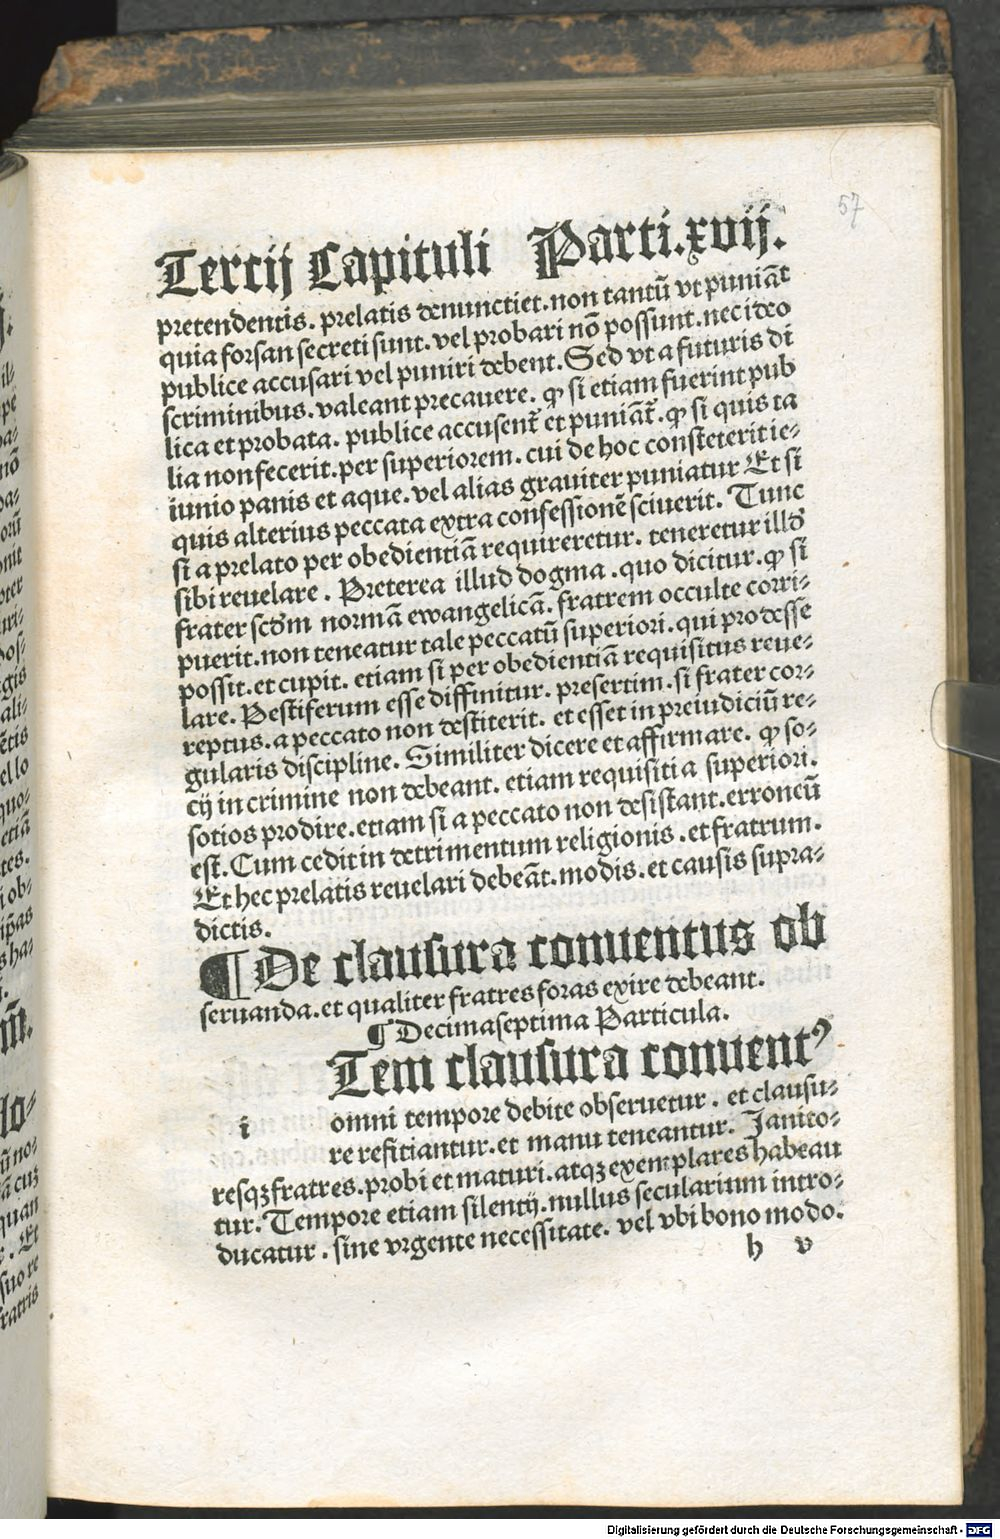 57
Tercij Capituli Parti.xvij.
pretendentis. prelatis denunctiet. non tantū vt puniāt
quia forsan secreti sunt. vel probari nō possunt. nec ideo
publice accusari vel puniri debent. Sed vt a futuris di
scriminibus. valeant precauere. ꝙ si etiam fuerint pub
lica et probata. publice accusent᷑ et puniāt᷑. ꝙ si quis ta
lia non fecerit. per superiorem. cui de hoc consteterit ie⸗
iunio panis et aque. vel alias grauiter puniatur Et si
quis alterius peccata extra confessionē sciuerit. Tunc
si a prelato per obedientiā requireretur. teneretur illd᷑
sibi reuelare. Preterea illud dogma. quo dicitur. ꝙ si
frater scd᷑m normā ewangelicā. fratrem occulte corri⸗
puerit. non teneatur tale peccatū superiori. qui prodesse
possit. et cupit. etiam si per obedientiā requisitus reue⸗
lare. Pestiferum esse diffinitur. presertim. si frater cor⸗
reptus. a peccato non destiterit. et esset in preiudiciū re⸗
gularis discipline. Similiter dicere et affirmare. ꝙ so⸗
cij in crimine non debeant. etiam requisiti a superiori.
sotios prodire. etiam si a peccato non desistant. erroneū
est. Cum cedit in detrimentum religionis. et fratrum.
Et hec prelatis reuelari debeāt. modis. et causis supra⸗
dictis.
¶ De clausura conuentus ob
seruanda. et qualiter fratres foras exire debeant.
¶ Decimaseptima Particula.
Tem clausura conuentꝰ
i omni tempore debite obseruetur. et clausu⸗
re refitiantur. et manu teneantur. Janito⸗
resqꝫ fratres. probi et maturi. atqꝫ exemplares habeau
tur. Tempore etiam silentij. nullus secularium intro⸗
ducatur. sine vrgente necessitate. vel vbi bono modo.
h v
Digitalisierung gefördert durch die Deutsche Forschungsgemeinschaft - DFG